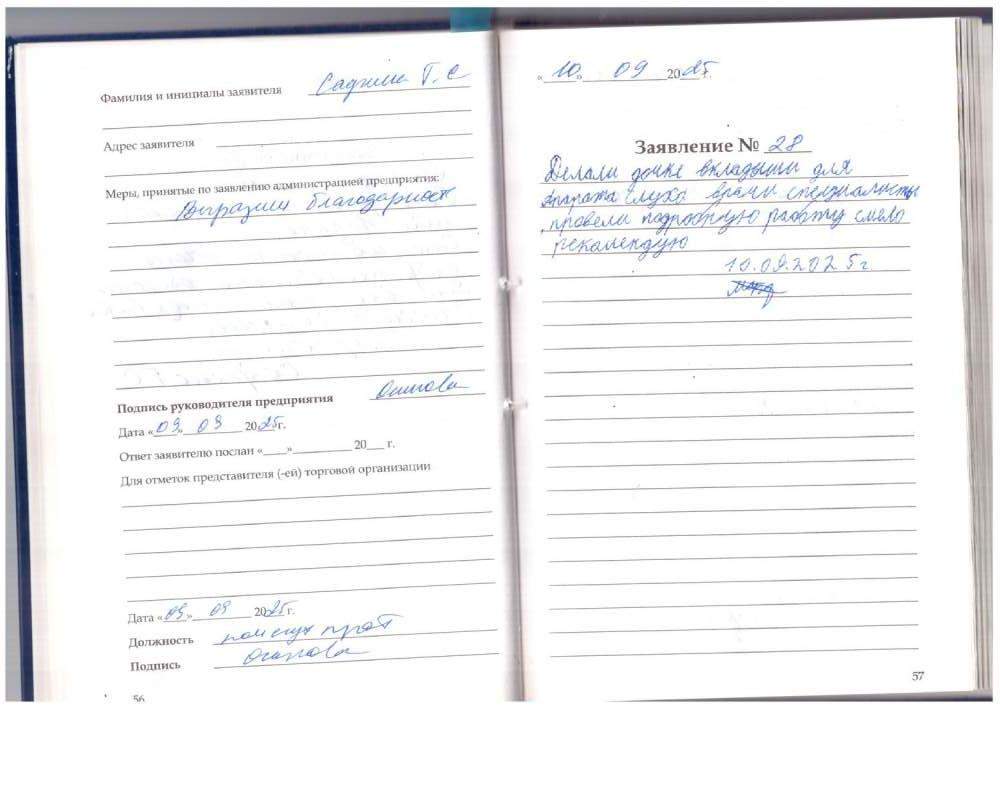 Фамилия и инициалы заявителя Т. С
Адрес заявителя
Меры, принятые по заявлению администрацией предприятия:
Выразили благодарность
Подпись руководителя предприятия Осипова
Дата «09» 09 2025 г.
Ответ заявителю послан «____»__________ 20___ г.
Для отметок представителя (-ей) торговой организации
Дата «09» 09 2025 г.
Должность
Подпись Осипова
56
«10» 09 2025 г.
Заявление № 28
Делали дочке вкладыши для
апарата слуха врачи специалисты
провели подробную работу смело
рекомендую
10.09.2025 г
57